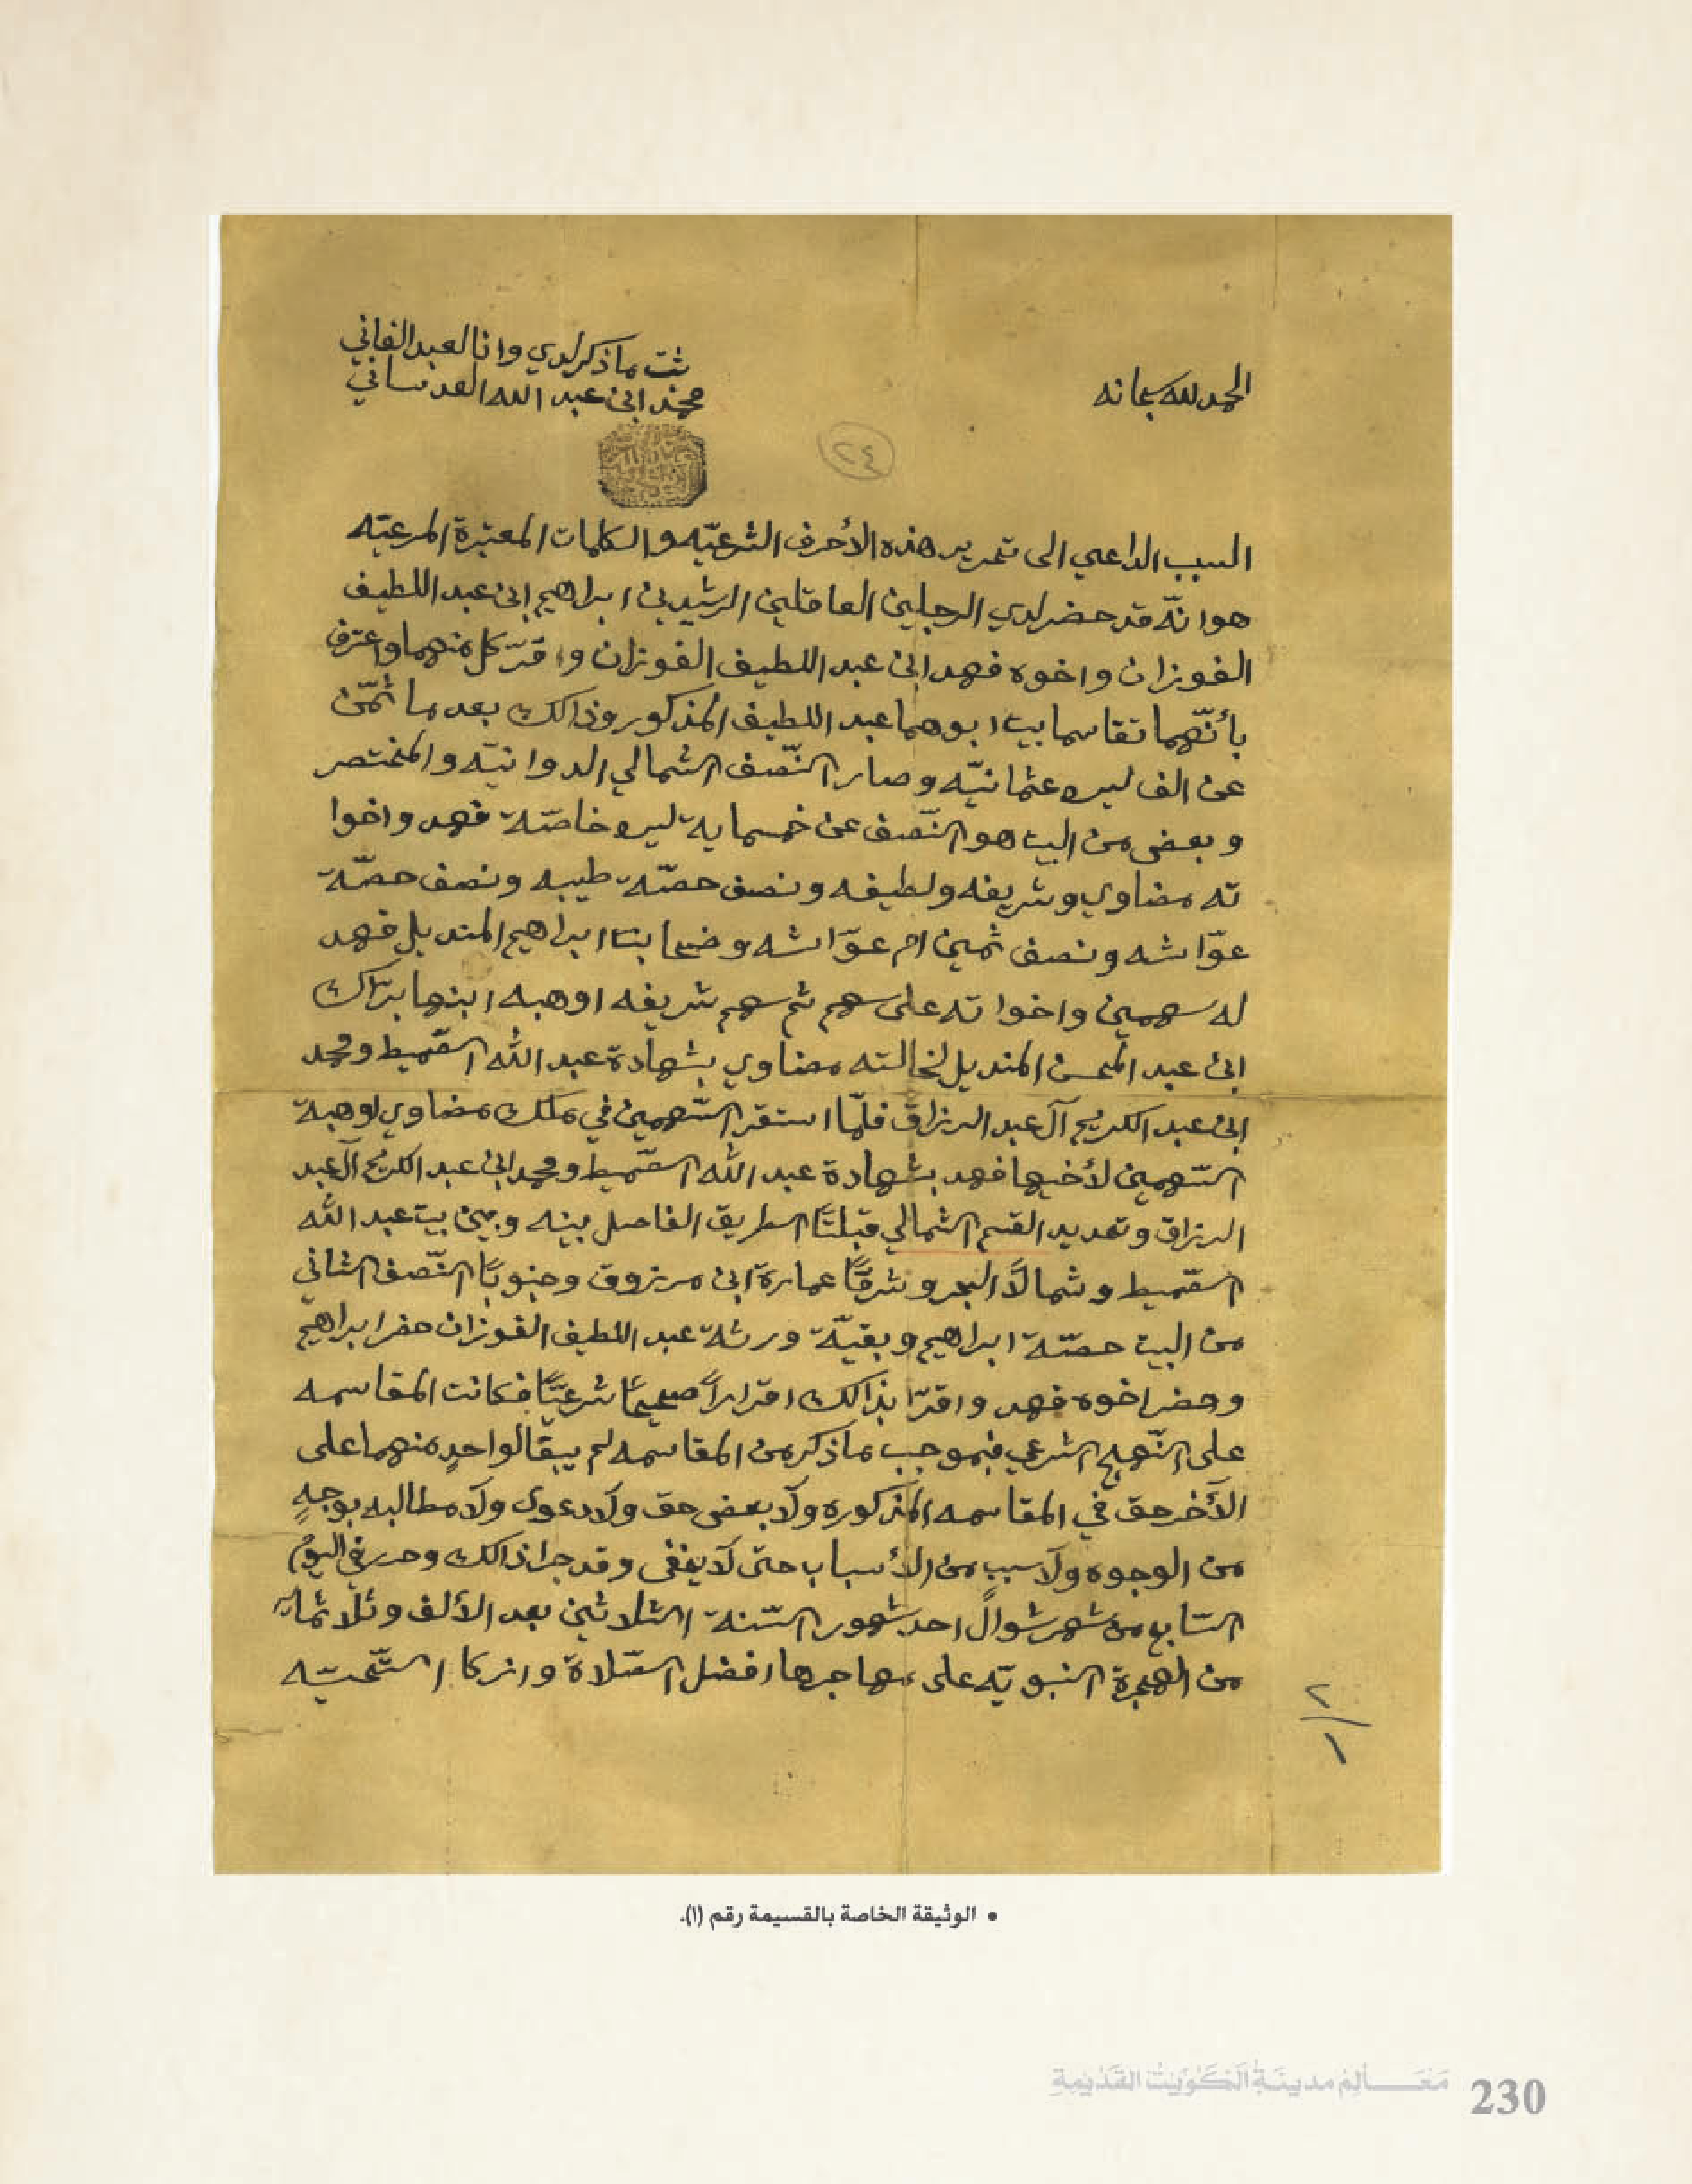 الحمد لله سبحانه
ثبت ما ذكر لدي وانا العبد الفاني
محمد ابن عبد الله العدساني
٢٤
السبب الداعي الى تحرير هذه الأحرف الشرعيّه والكلمات المعتبرة المرعيّه
هو انّه قد حضر لدي الرجلين العاقلين الرشيدين ابراهيم ابن عبد اللطيف
الفوزان واخوه فهد ابن عبد اللطيف الفوزان واقرّ كل منهما واعترف
بأنّهما تقاسما بيت ابوهما عبد اللطيف المذكور وذالك بعد ما ثمّن
عن الف ليره عثمانيّه وصار النّصف الشمالي الدوانيّه والمختصر
وبعض من البيت هو النّصف عن خمسماية ليره خاصّة فهد واخوا
ته مضاوي وشريفه ولطيفه ونصف حصّة طيبه ونصف حصّة
عوّاشه ونصف ثمين ام عوّاشه وضحا بنت ابراهيم المنديل فهد
له سهمين واخواته على سهم ثم سهم شريفه اوهبه ابنها برّاك
ابن عبد المحسن المنديل لخالته مضاوي بشهادة عبد الله السّميط ومحمد
ابن عبد الكريم آل عبد الرزاق فلمّا استقر السّهمين في ملك مضاوي اوهبة
السّهمين لأخيها فهد بشهادة عبد الله السّميط ومحمد ابن عبد الكريم آل عبد
الرزاق وتحديد القسم الشمالي قبلتًا الطريق الفاصل بينه وبين بيت عبد الله
السّميط وشمالًا البحر وشرقًا عمارة ابن مرزوق وجنوبًا النّصف الثاني
من البيت حصّة ابراهيم وبقيّة ورثة عبد اللطيف الفوزان حضر ابراهيم
وحضر اخوه فهد واقرّا بذالك اقرارًا صحيحًا شرعيًّا فكانت المقاسمه
على النّهج الشرعي فبموجب ما ذكر من المقاسمه لم يبقا لواحدٍ منهما على
الآخر حق في المقاسمه المذكوره ولا بعض حق ولا دعوى ولا مطالبه بوجهٍ
من الوجوه ولا سبب من الأسباب حتى لا يخفى وقد جرا ذالك وحرر في اليوم
السّابع من شهر شوال احد شهور السّنة الثلاثين بعد الألف وثلاثمائه
من الهجرة النبويّه على مهاجرها افضل الصّلاة وازكا التّحيّه
٢
١
• الوثيقة الخاصة بالقسيمة رقم (١).
مَعَالِم مدينَة الكُوَيت القَدِيمة
230